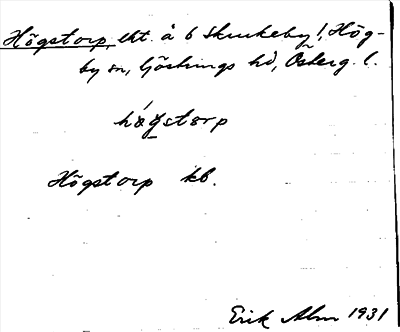 Högstorp, lht. å 6 Skrukeby, Hög-
by sn, Göstrings hd, Österg. l.
högstorp
Högstorp kb.
Erik Alm 1931